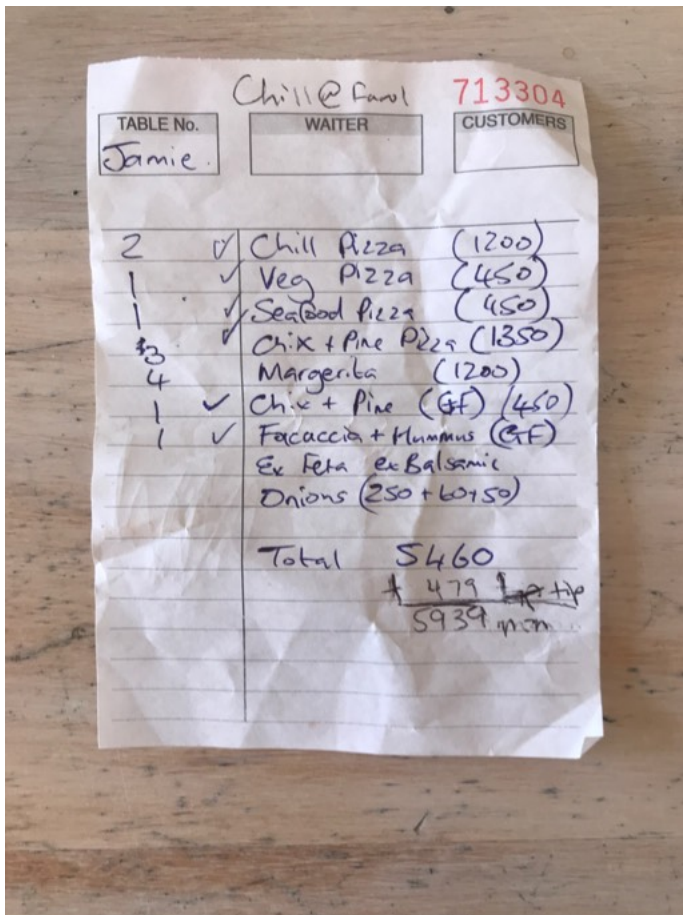 Chill@ Farol
713304
TABLE No. WAITER CUSTOMERS
Jamie.
2 ✓ Chill Pizza (1200)
1 ✓ Veg Pizza (450)
1 ✓ Seafood Pizza (450)
3 ✓ Chix + Pine Pizza (1350)
4 Margerita (1200)
1 ✓ Chix + Pine (GF) (450)
1 ✓ Facaccia + Hummus (GF)
Ex Feta ex Balsamic
Onions (250 + 60 + 50)
Total 5460
+ 479 tip
5939